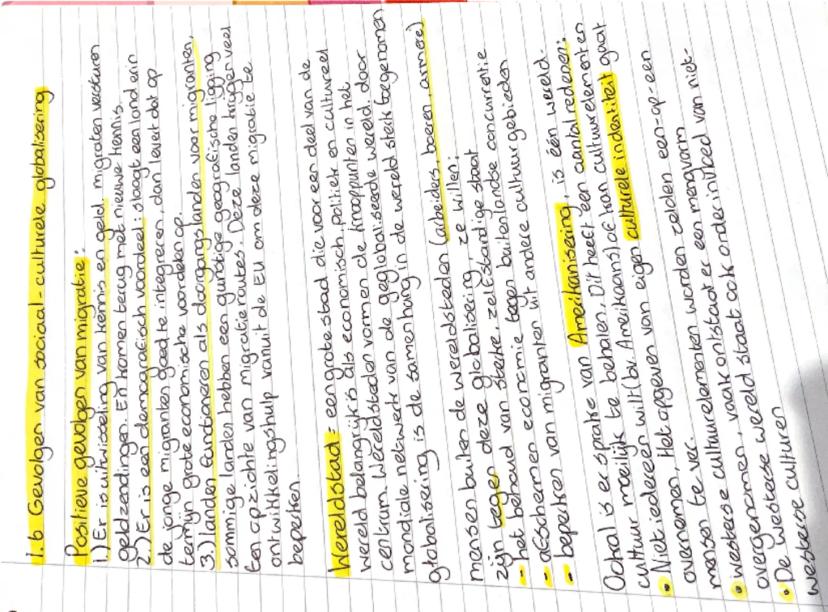 1.6 Gevolgen van sociaal-culturele globalisering
Positieve gevolgen van migratie:
1.) Er is uitwisseling van kennis en geld, migranten versturen
geldzendingen. En komen terug met nieuwe kennis.
2.) Er is een demografisch voordeel: slaagt een land erin
de jonge migranten goed te integreren, dan levert dat op
termijn grote economische voordelen op.
3) landen functioneren als doorgangslanden voor migranten,
sommige landen hebben een gunstige geografische ligging
ten opzichte van migratieroutes. Deze landen krijgen veel
ontwikkelingshulp vanuit de EU om deze migratie te
beperken.
Wereldstad = een grote stad die voor een deel van de
wereld belangrijk is als economisch politiek en cultureel
centrum. Wereldsteden vormen de knooppunten in het
mondiale netwerk van de geglobaliseerde wereld, door
globalisering is de samenhang in de wereld sterk toegenomen
mensen buiten de wereldsteden (arbeiders, boeren, armee)
zijn tegen deze globalisering, ze willen:
- het behoud van sterke, zelfstandige staat
- afschermen economie tegen buitenlandse concurrentie
- beperken van migranten uit andere cultuurgebieden
Ook al is er sprake van Amerikanisering, is één wereld-
cultuur moeilijk te behalen, Dit heeft een aantal redenen:
• Niet iedereen wilt (bv. Amerikaans) of kan cultuurelementen
overnemen, Het opgeven van eigen culturele indentiteit gaat
mensen te ver.
• westerse cultuurelementen worden zelden een-op-een
overgenomen, vaak ontstaat er een mengvorm
• De westerse wereld staat ook onder invloed van niet-
westerse culturen